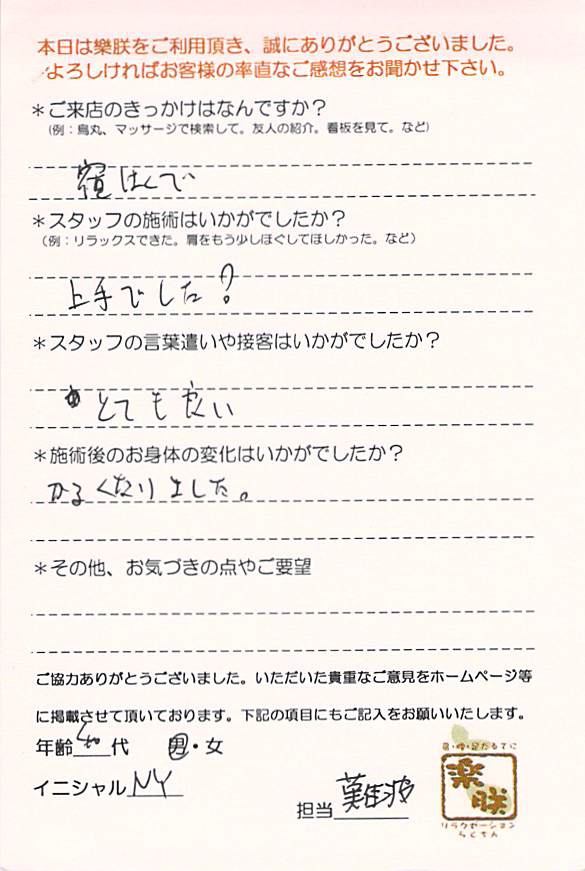 本日は樂朕をご利用頂き、誠にありがとうございました。
よろしければお客様の率直なご感想をお聞かせ下さい。
＊ご来店のきっかけはなんですか？
（例：烏丸、マッサージで検索して。友人の紹介。看板を見て。など）
＊スタッフの施術はいかがでしたか？
（例：リラックスできた。肩をもう少しほぐしてほしかった。など）
上手でした？
＊スタッフの言葉遣いや接客はいかがでしたか？
とても良い
＊施術後のお身体の変化はいかがでしたか？
かるくなりました。
＊その他、お気づきの点やご要望
ご協力ありがとうございました。いただいた貴重なご意見をホームページ等
に掲載させて頂いております。下記の項目にもご記入をお願いいたします。
年齢 40 代 男・女
イニシャル NY
担当 難波
樂朕
リラクゼーション
らくちん